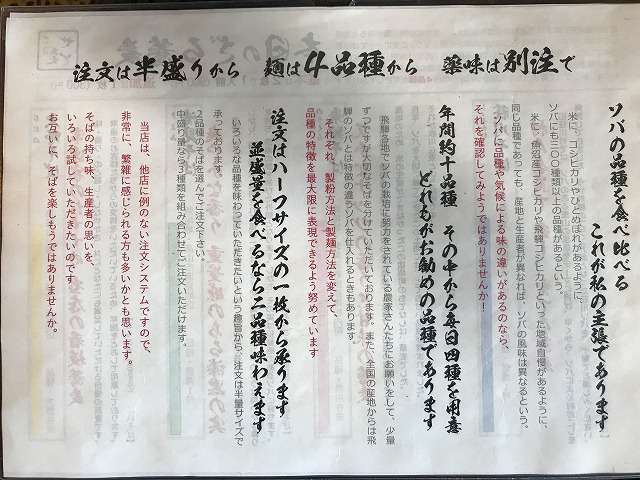 注文は半盛りから　麺は4品種から　薬味は別注で
ソバの品種を食べ比べる
これが私の主張であります
米に、コシヒカリやひとめぼれがあるように、
ソバにも三〇〇種類以上の品種があるという。
米に、魚沼産コシヒカリや飛騨コシヒカリといった地域自慢があるように、
同じ品種であっても、産地と生産者が異なれば、ソバの風味は異なるという。
ソバに品種や気候による味の違いがあるのなら、
それを確認してみようではありませんか！
年間約十品種　その中から毎日四種を用意
どれもがお勧めの品種であります
飛騨各地でソバの栽培に努力をされている農家さんたちにお願いをして、少量
ずつですが大切なそばを分けていただいております。また、全国の産地からは飛
騨のソバとは特徴の違うソバを仕入れるときもあります。
それぞれ、製粉方法と製麺方法を変えて、
品種の特徴を最大限に表現できるよう努めています
注文はハーフサイズの一枚から承ります
並盛量を食べるなら二品種味わえます
いろいろな品種を味わっていただきたいという趣旨から、注文は半量サイズで
承っております。
２品種のそばを選んでご注文下さい。
中盛り量なら３種類を組み合わせてご注文いただけます。
当店は、他店に例のない注文システムですので、
非常に、繁雑に感じられる方も多いかとも思います。
そばの持ち味、生産者の思いを、
いろいろ試していただきたいのです
お互いに、そばを楽しもうではありませんか。